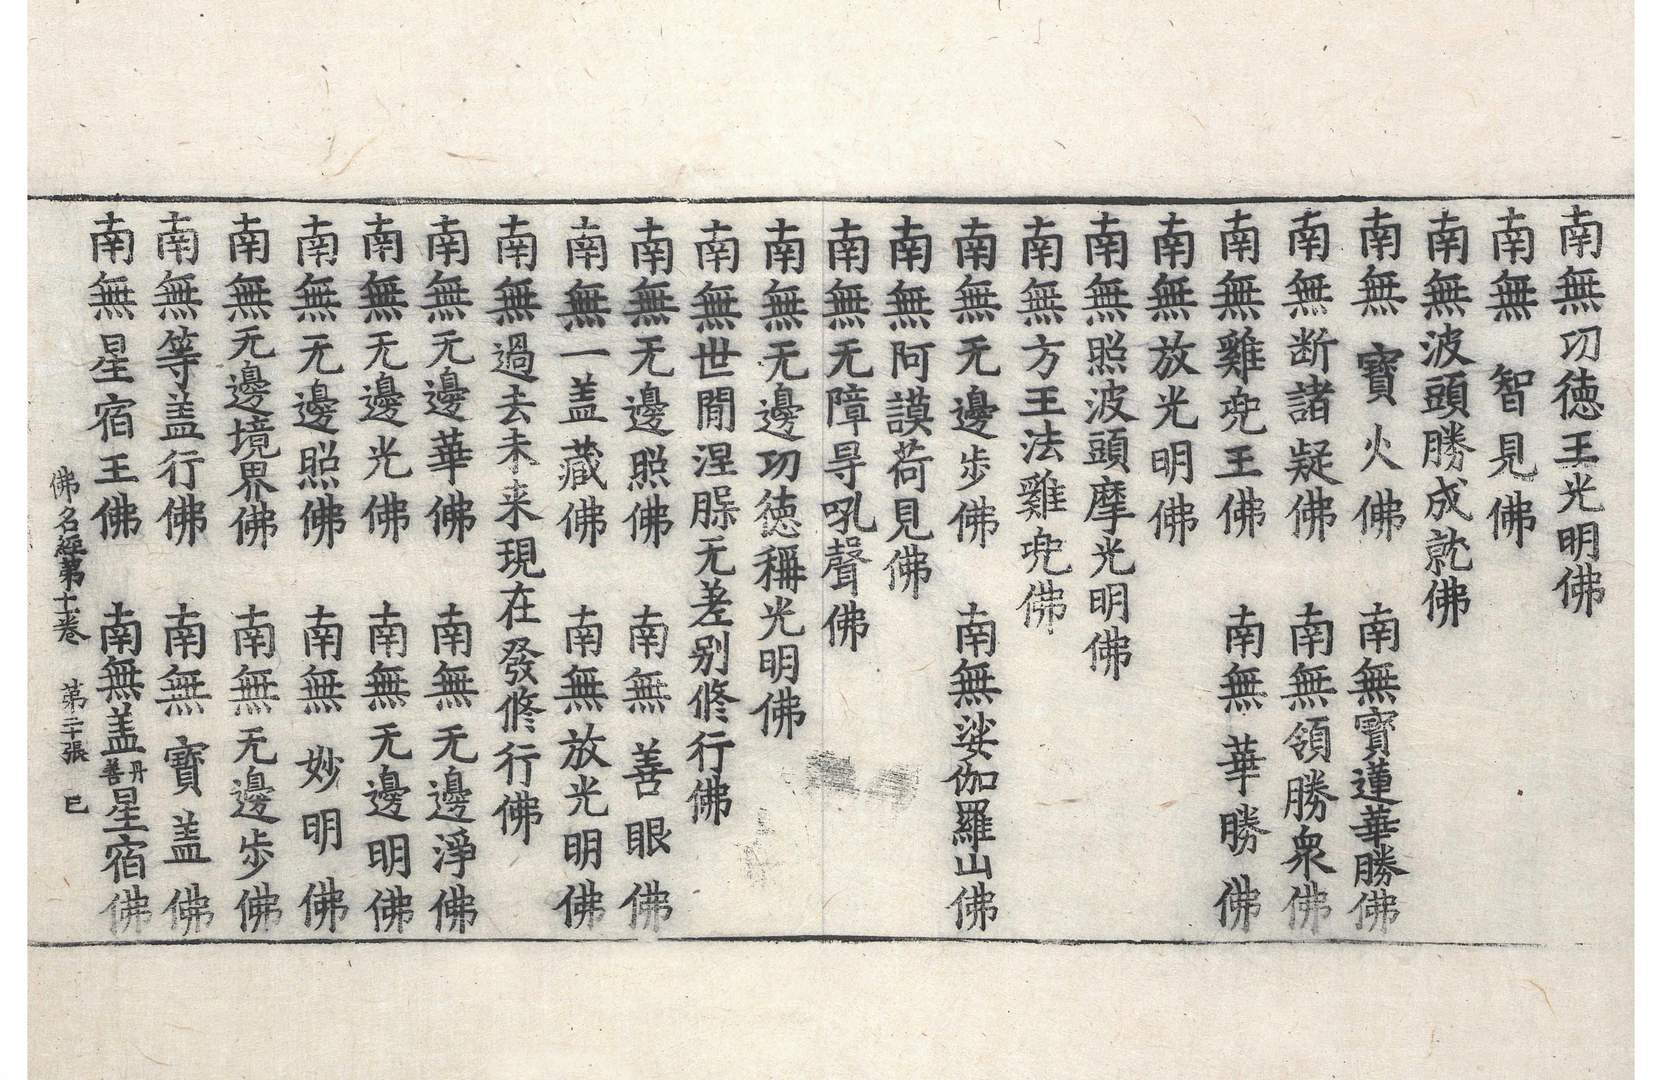 南無㓛徳王光明佛
南無智見佛
南無波頭勝成就佛
南無寳火佛 南無寳蓮華勝佛
南無断諸疑佛 南無領勝衆佛
南無雞兜王佛 南無華勝佛
南無放光明佛
南無照波頭摩光明佛
南無方王法雞兜佛
南無无邊步佛 南無娑伽羅山佛
南無阿謨荷見佛
南無无障㝵吼聲佛
南無无邊㓛徳稱光明佛
南無世間涅𦜮无差别修行佛
南無无邊照佛 南無善眼佛
南無一盖藏佛 南無放光明佛
南無過去未来現在發修行佛
南無无邊華佛 南無无邊淨佛
南無无邊光佛 南無无邊明佛
南無无邊照佛 南無妙明佛
南無无邊境界佛 南無无邊步佛
南無等盖行佛 南無寳盖佛
南無星宿王佛 南無盖丹善星宿佛
佛名經第十卷 第二十張 巳